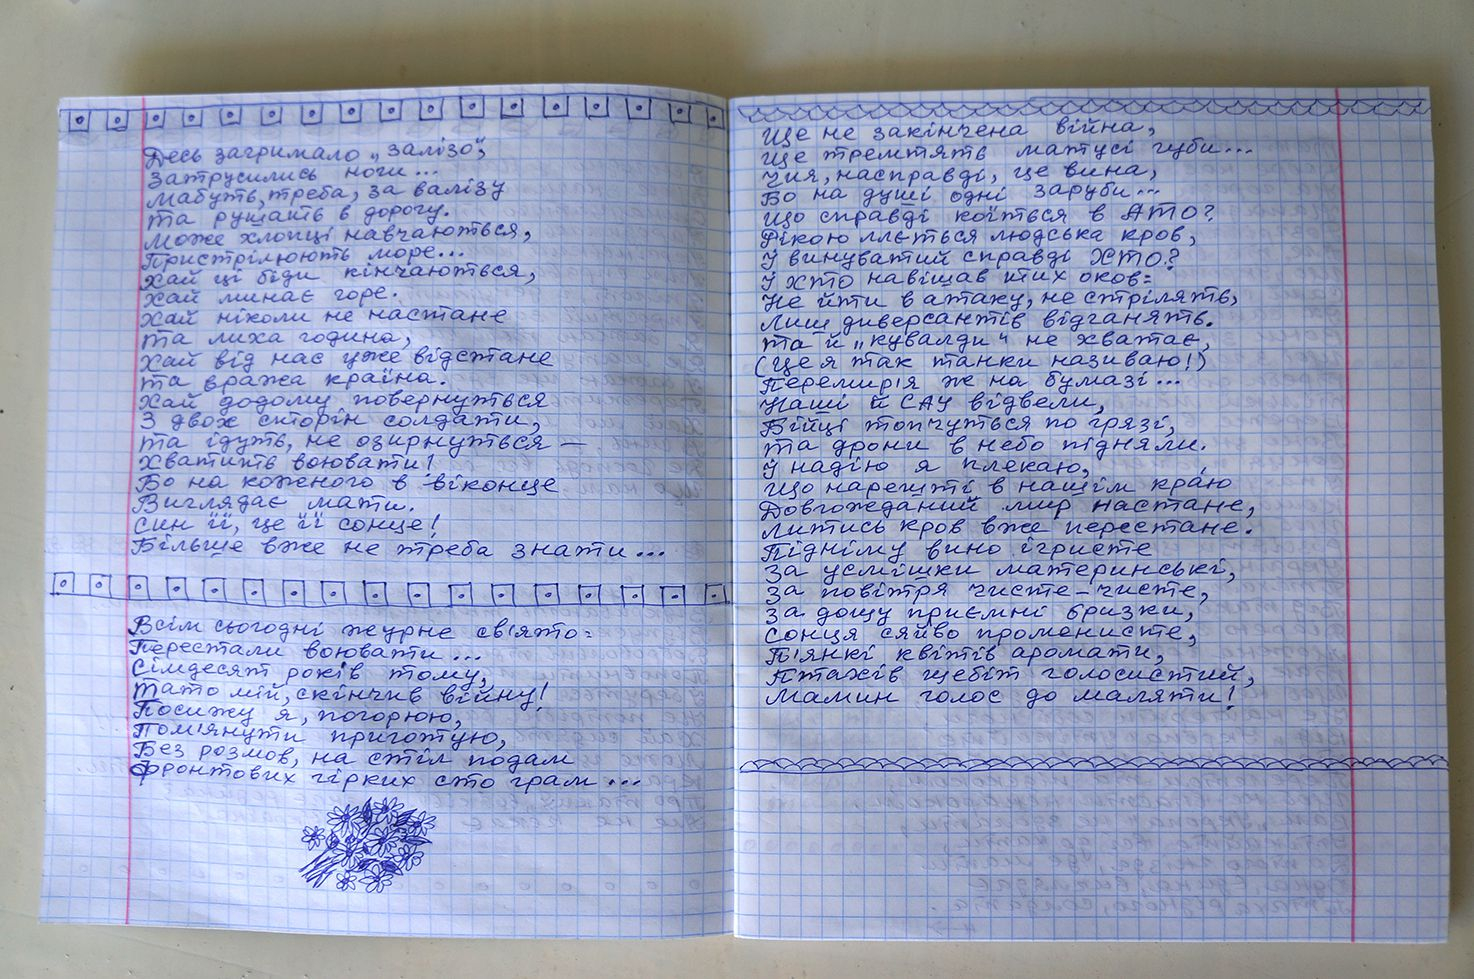 Десь загримало „залізо",
Затрусились ноги...
Мабуть, треба, за валізу
Та рушать в дорогу.
Може хлопці навчаються,
Пристрілюють море...
Хай ці біди кінчаються,
Хай минає горе.
Хай ніколи не настане
Та лиха година,
Хай від нас уже відстане
Та вража країна.
Хай додому повернуться
З двох сторін солдати,
Та ідуть, не озирнуться –
Хватить воювати!
Бо на коженого в віконце
Виглядає мати.
Син її, це її сонце!
Більше вже не треба знати...
Всім сьогодні журне св'ято:
Перестали воювати...
Сімдесят років тому,
Тато мій, скінчив війну!
Посижу я, погорюю,
Пом'янути приготую,
Без розмов, на стіл подам
Фронтових гірких сто грам...
Ще не закінчена війна,
Ще тремтять матусі губи...
Чия, насправді, це вина,
Бо на душі одні заруби...
Що справді коїться в АТО?
Рікою ллється людська кров,
У винуватий справді ХТО?
У хто навішав тих оков:
Не йти в атаку, не стрілять,
Лиш диверсантів відганять.
Та й „кувалди" не хватає,
(Це я так танки називаю!)
Перемир'я же на бумазі...
Наші й САУ відвели,
Бійці топчуться по грязі,
Та дрони в небо підняли.
У надію я плекаю,
Що нарешті в нашім краю
Довгожданий мир настане,
Литись кров вже перестане.
Підніму вино ігристе
За усмішки материнські,
За повітря чисте-чисте,
За дощу приємні бризки,
Сонця сяйво променисте,
П'янкі квітів аромати,
Птахів щебіт голосистий,
Мамин голос до маляти!